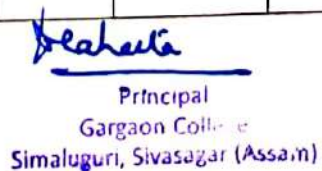 Principal
Gargaon
Simaluguri, Sivasagar (Assam)